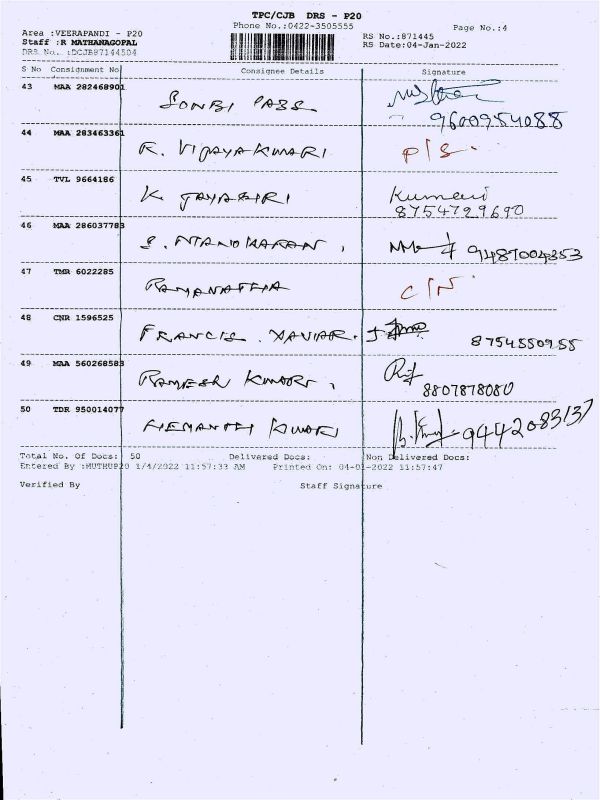 TPC/CJB DRS - P20
Phone No.:0422-3505555
Page No.:4
Area :VEERAPANDI - P20
RS No.:871445
Staff :R MATHANAGOPAL
RS Date:04-Jan-2022
DRS No. :DCJB87144504
S No Consignment No Consignee Details Signature
43 MAA 282468901 SONBI PASS
9600954088
44 MAA 283463361 R. VIJAYAKUMARI P/S.
45 TVL 9664186 K. JAYASIRI Kumari
8754729690
46 MAA 286037783 9487004353
47 TMR 6022285 RAMANATHA C/N
48 CNR 1596525 FRANCIS XAVIAR.
8754550955
49 MAA 560268583 RAMESH KUMAR,
8807878080
50 TDR 950014077 HEMANTH KUMAR 9442083137
Total No. Of Docs: 50 Delivered Docs: Non Delivered Docs:
Entered By :MUTHUP20 1/4/2022 11:57:33 AM Printed On: 04-01-2022 11:57:47
Verified By Staff Signature